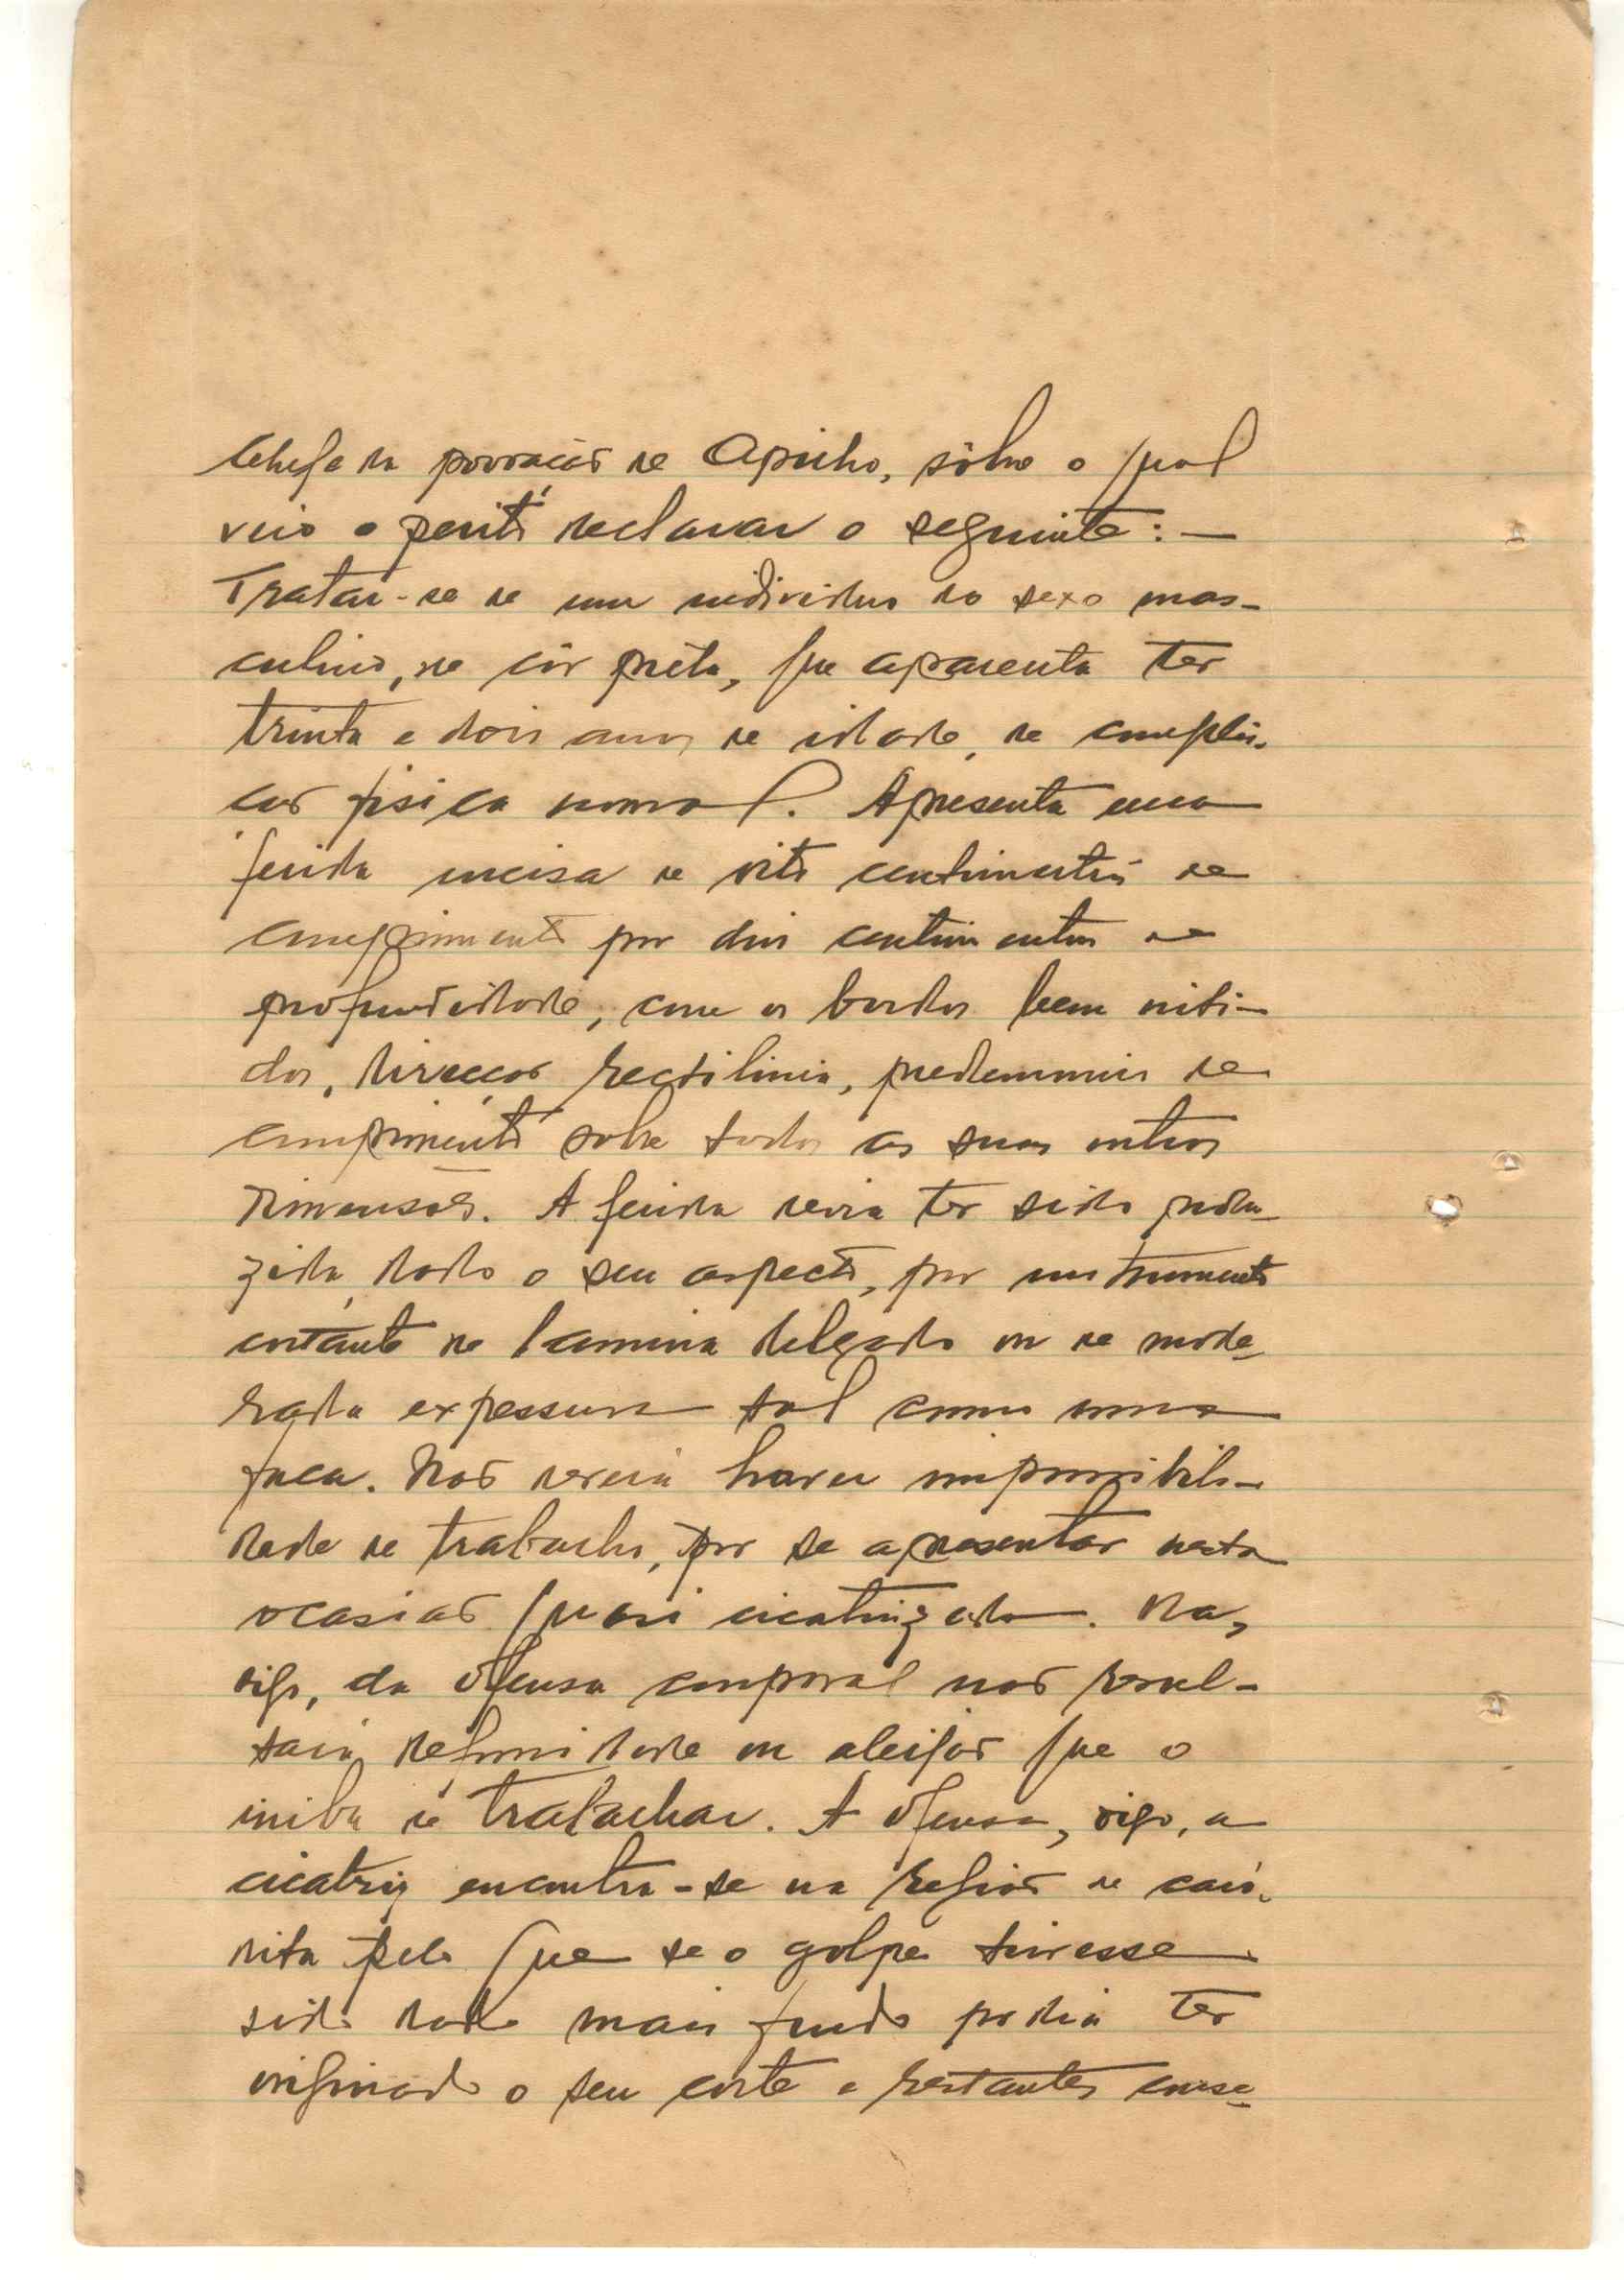 Chefe da povoação de Apicho, sôbre o qual
veio o perito declarar o seguinte: —
Tratar-se de um individuo do sexo mas-
culino, de côr preta, que aparenta ter
trinta e dois anos de idade, de complei-
ção fisica normal. Apresenta uma
ferida incisa de oito centimetros de
comprimento por dois centimetros de
profundidade, com os bordos bem niti-
dos, direcção rectilinia, predominio de
comprimento sobre todas as suas outras
dimensões. A ferida devia ter sido produ-
zida, dado o seu aspecto, por instrumento
cortante de lamina delgada ou de mode-
rada expessura tal como uma
faca. Não deveria haver impossibili-
dade de trabalho, por se apresentar nesta
ocasião quasi cicatrizada. Da,
digo, da ofensa corporal não resul-
tará deformidade ou aleijão que o
iniba de trabalhar. A ofensa, digo, a
cicatriz encontra-se na região da caró-
tida pelo que se o golpe tivesse
sido dado mais fundo podia ter
originado o seu corte e restantes conse-